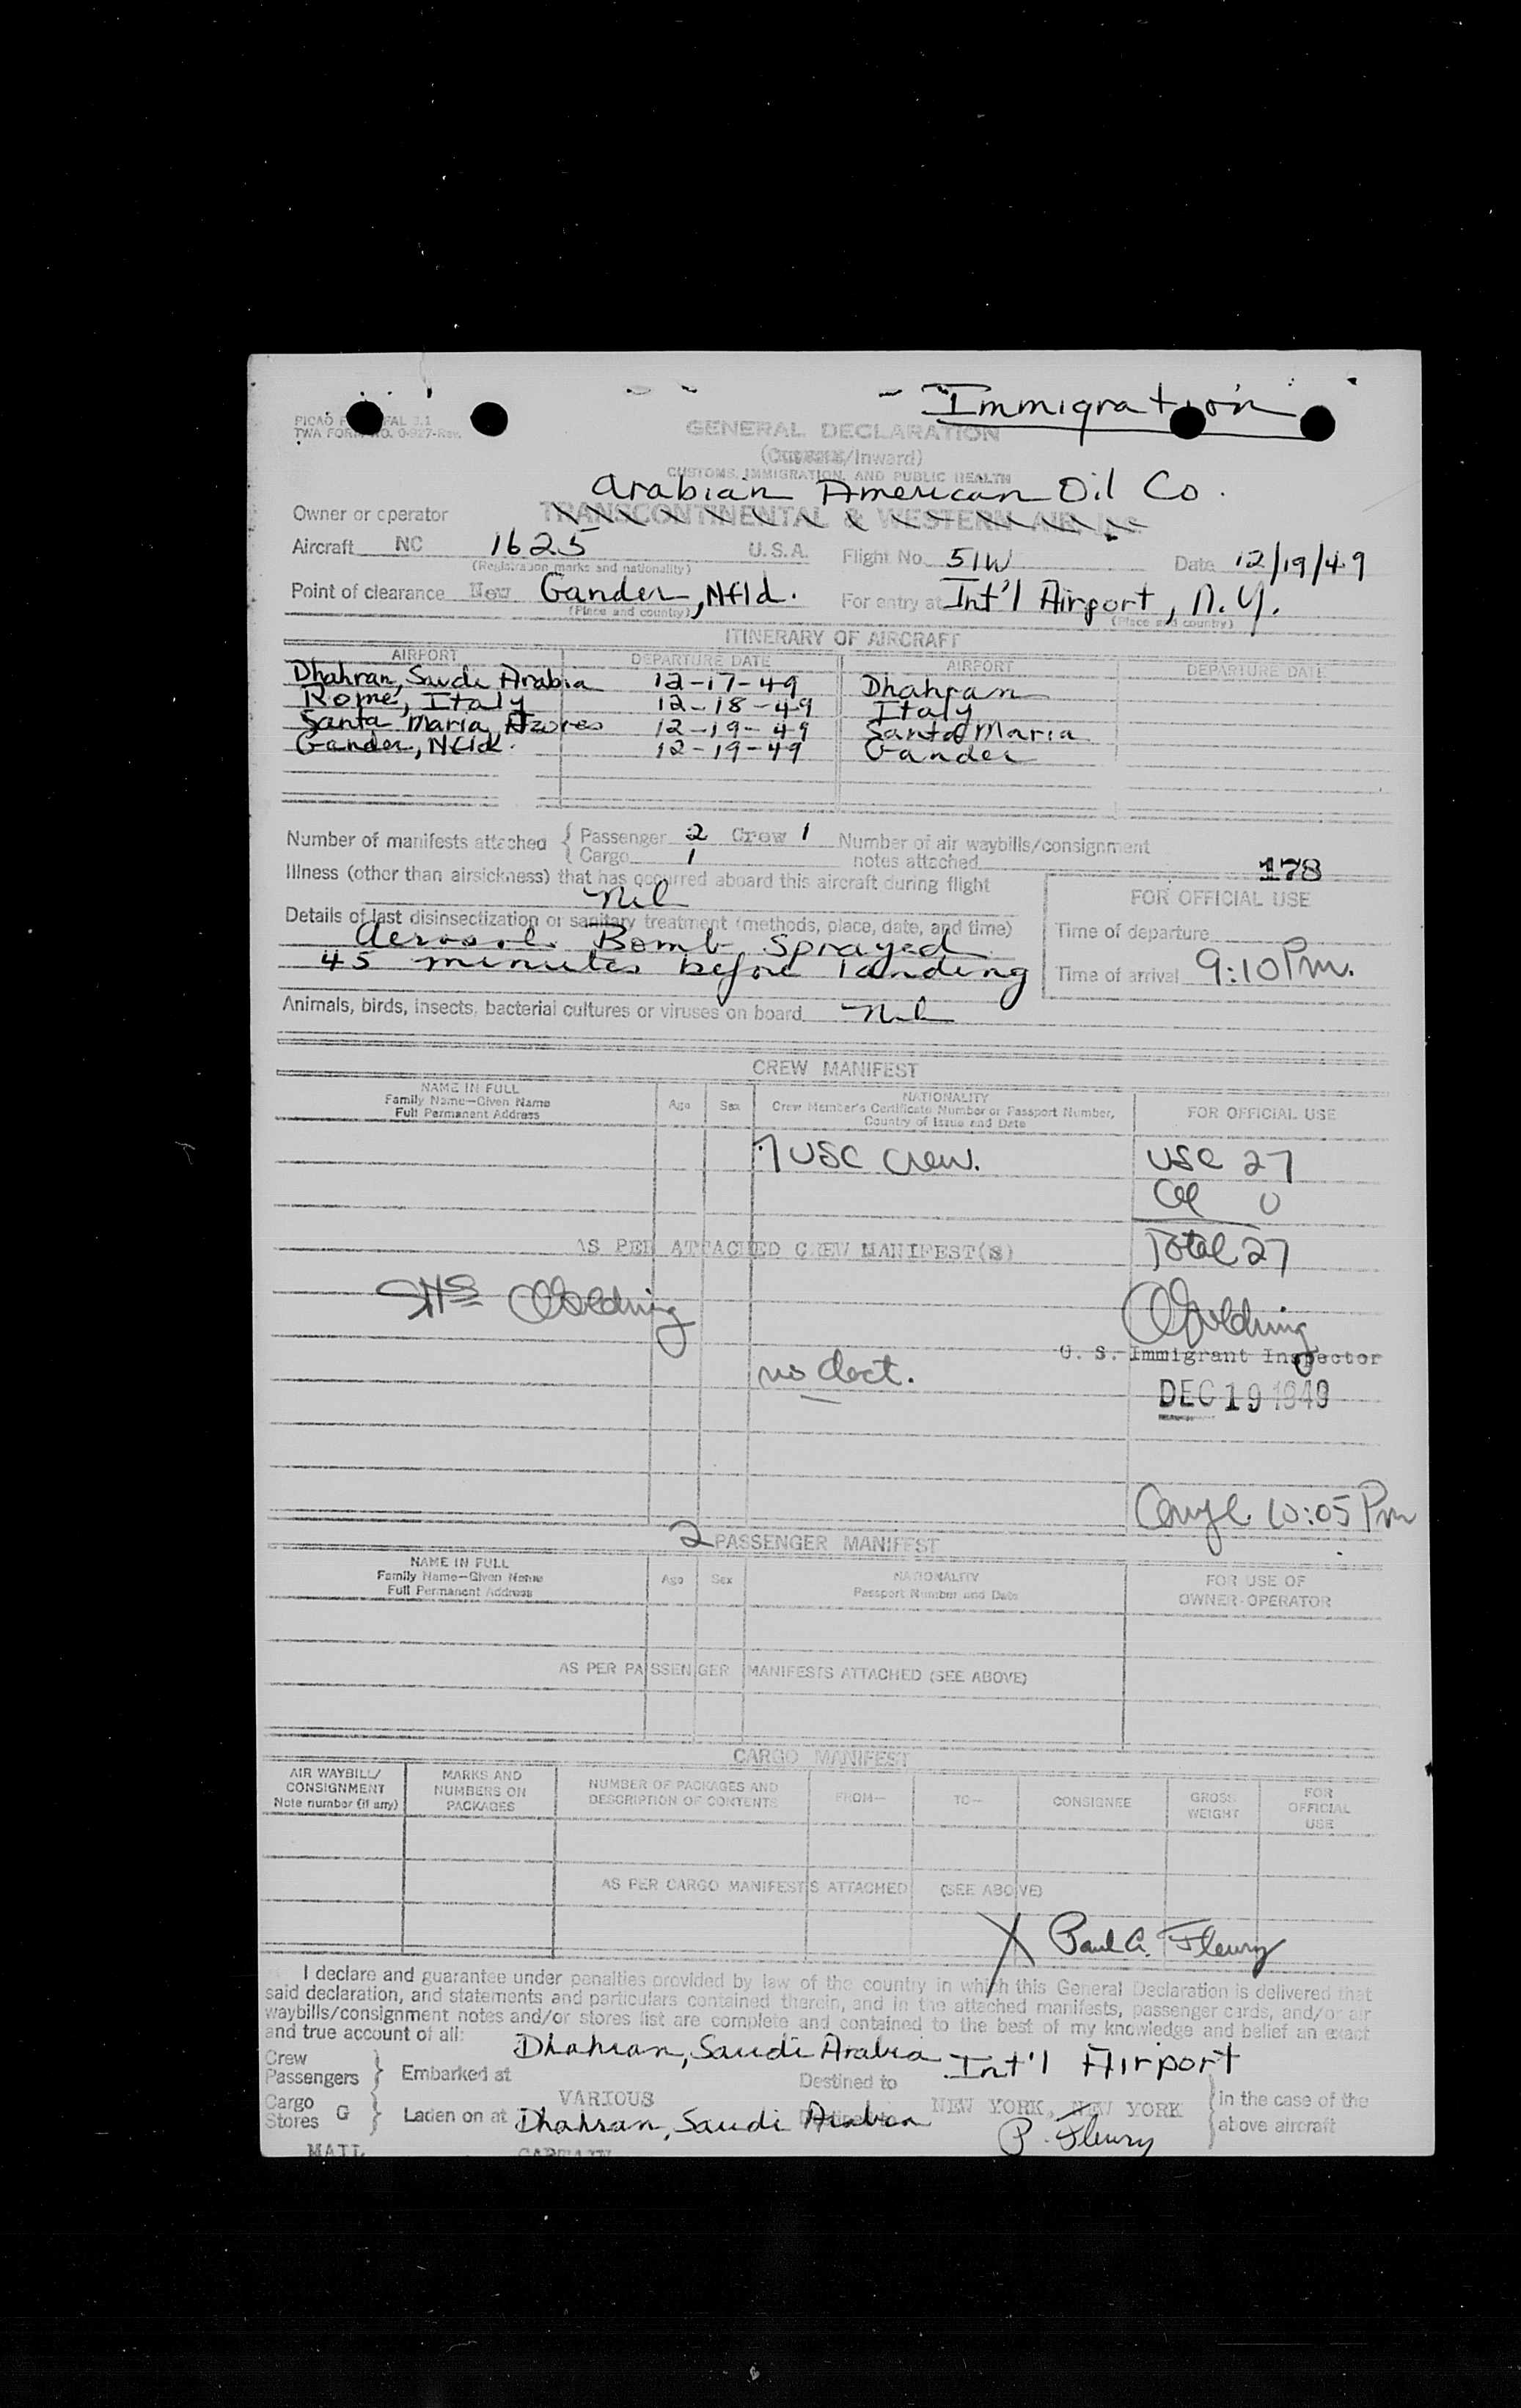 Immigration
PICAO FAL 3.1
TWA FORM NO. 0-927-Rev.
GENERAL DECLARATION
(Outward/Inward)
CUSTOMS, IMMIGRATION, AND PUBLIC HEALTH
Arabian American Oil Co.
Owner or operator TRANSCONTINENTAL & WESTERN AIR, Inc.
Aircraft NC 1625 U.S.A. Flight No. 51W Date 12/19/49
(Registration marks and nationality)
Point of clearance New Gander, Nfld. For entry at Int'l Airport, N.Y.
(Place and country) (Place and country)
ITINERARY OF AIRCRAFT
AIRPORT DEPARTURE DATE AIRPORT DEPARTURE DATE
Dhahran, Saudi Arabia 12-17-49 Dhahran
Rome, Italy 12-18-49 Italy
Santa Maria, Azores 12-19-49 Santa Maria
Gander, Nfld. 12-19-49 Gander
Number of manifests attached { Passenger 2 Crew 1 Number of air waybills/consignment
Cargo 1 notes attached
178
Illness (other than airsickness) that has occurred aboard this aircraft during flight
Nil
FOR OFFICIAL USE
Details of last disinsectization or sanitary treatment (methods, place, date, and time)
Aerosol Bomb Sprayed
45 minutes before landing
Time of departure
Time of arrival 9:10 Pm.
Animals, birds, insects, bacterial cultures or viruses on board Nil
CREW MANIFEST
NAME IN FULL
Family Name—Given Name
Full Permanent Address
Age Sex
NATIONALITY
Crew Member's Certificate Number or Passport Number,
Country of Issue and Date
FOR OFFICIAL USE
7 USC Crew. USC 27
0
AS PER ATTACHED CREW MANIFEST(S) Total 27
Goldring
Goldring
U. S. Immigrant Inspector
no
DEC 19 1949
10:05 Pm
2 PASSENGER MANIFEST
NAME IN FULL
Family Name—Given Name
Full Permanent Address
Age Sex
NATIONALITY
Passport Number and Date
FOR USE OF
OWNER-OPERATOR
AS PER PASSENGER MANIFESTS ATTACHED (SEE ABOVE)
CARGO MANIFEST
AIR WAYBILL/
CONSIGNMENT
Note number (if any)
MARKS AND
NUMBERS ON
PACKAGES
NUMBER OF PACKAGES AND
DESCRIPTION OF CONTENTS
FROM— TO— CONSIGNEE
GROSS
WEIGHT
FOR
OFFICIAL
USE
AS PER CARGO MANIFESTS ATTACHED (SEE ABOVE)
X Paul A. Fleury
I declare and guarantee under penalties provided by law of the country in which this General Declaration is delivered that
said declaration, and statements and particulars contained therein, and in the attached manifests, passenger cards, and/or air
waybills/consignment notes and/or stores list are complete and contained to the best of my knowledge and belief an exact
and true account of all:
Crew
Passengers } Embarked at Dhahran, Saudi Arabia Destined to Int'l Airport
VARIOUS NEW YORK, NEW YORK
Cargo
Stores G } Laden on at Dhahran, Saudi Arabia
in the case of the
above aircraft
P. Fleury
MAIL CAPTAIN